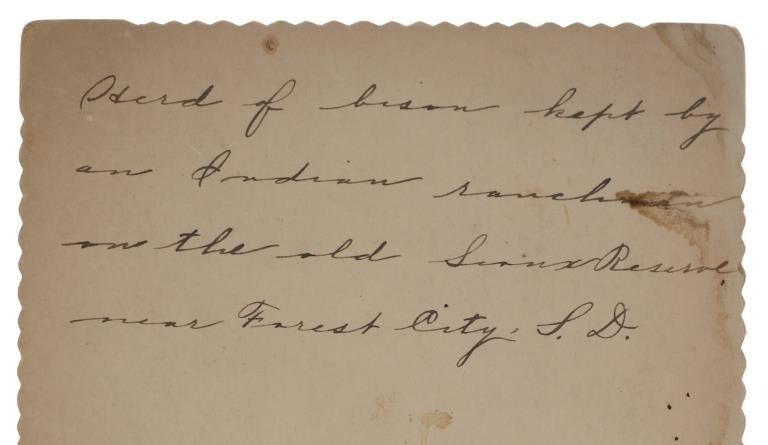 Herd of bison kept by
an Indian ranchman
on the old Sioux Reserve
near Forest City, S. D.